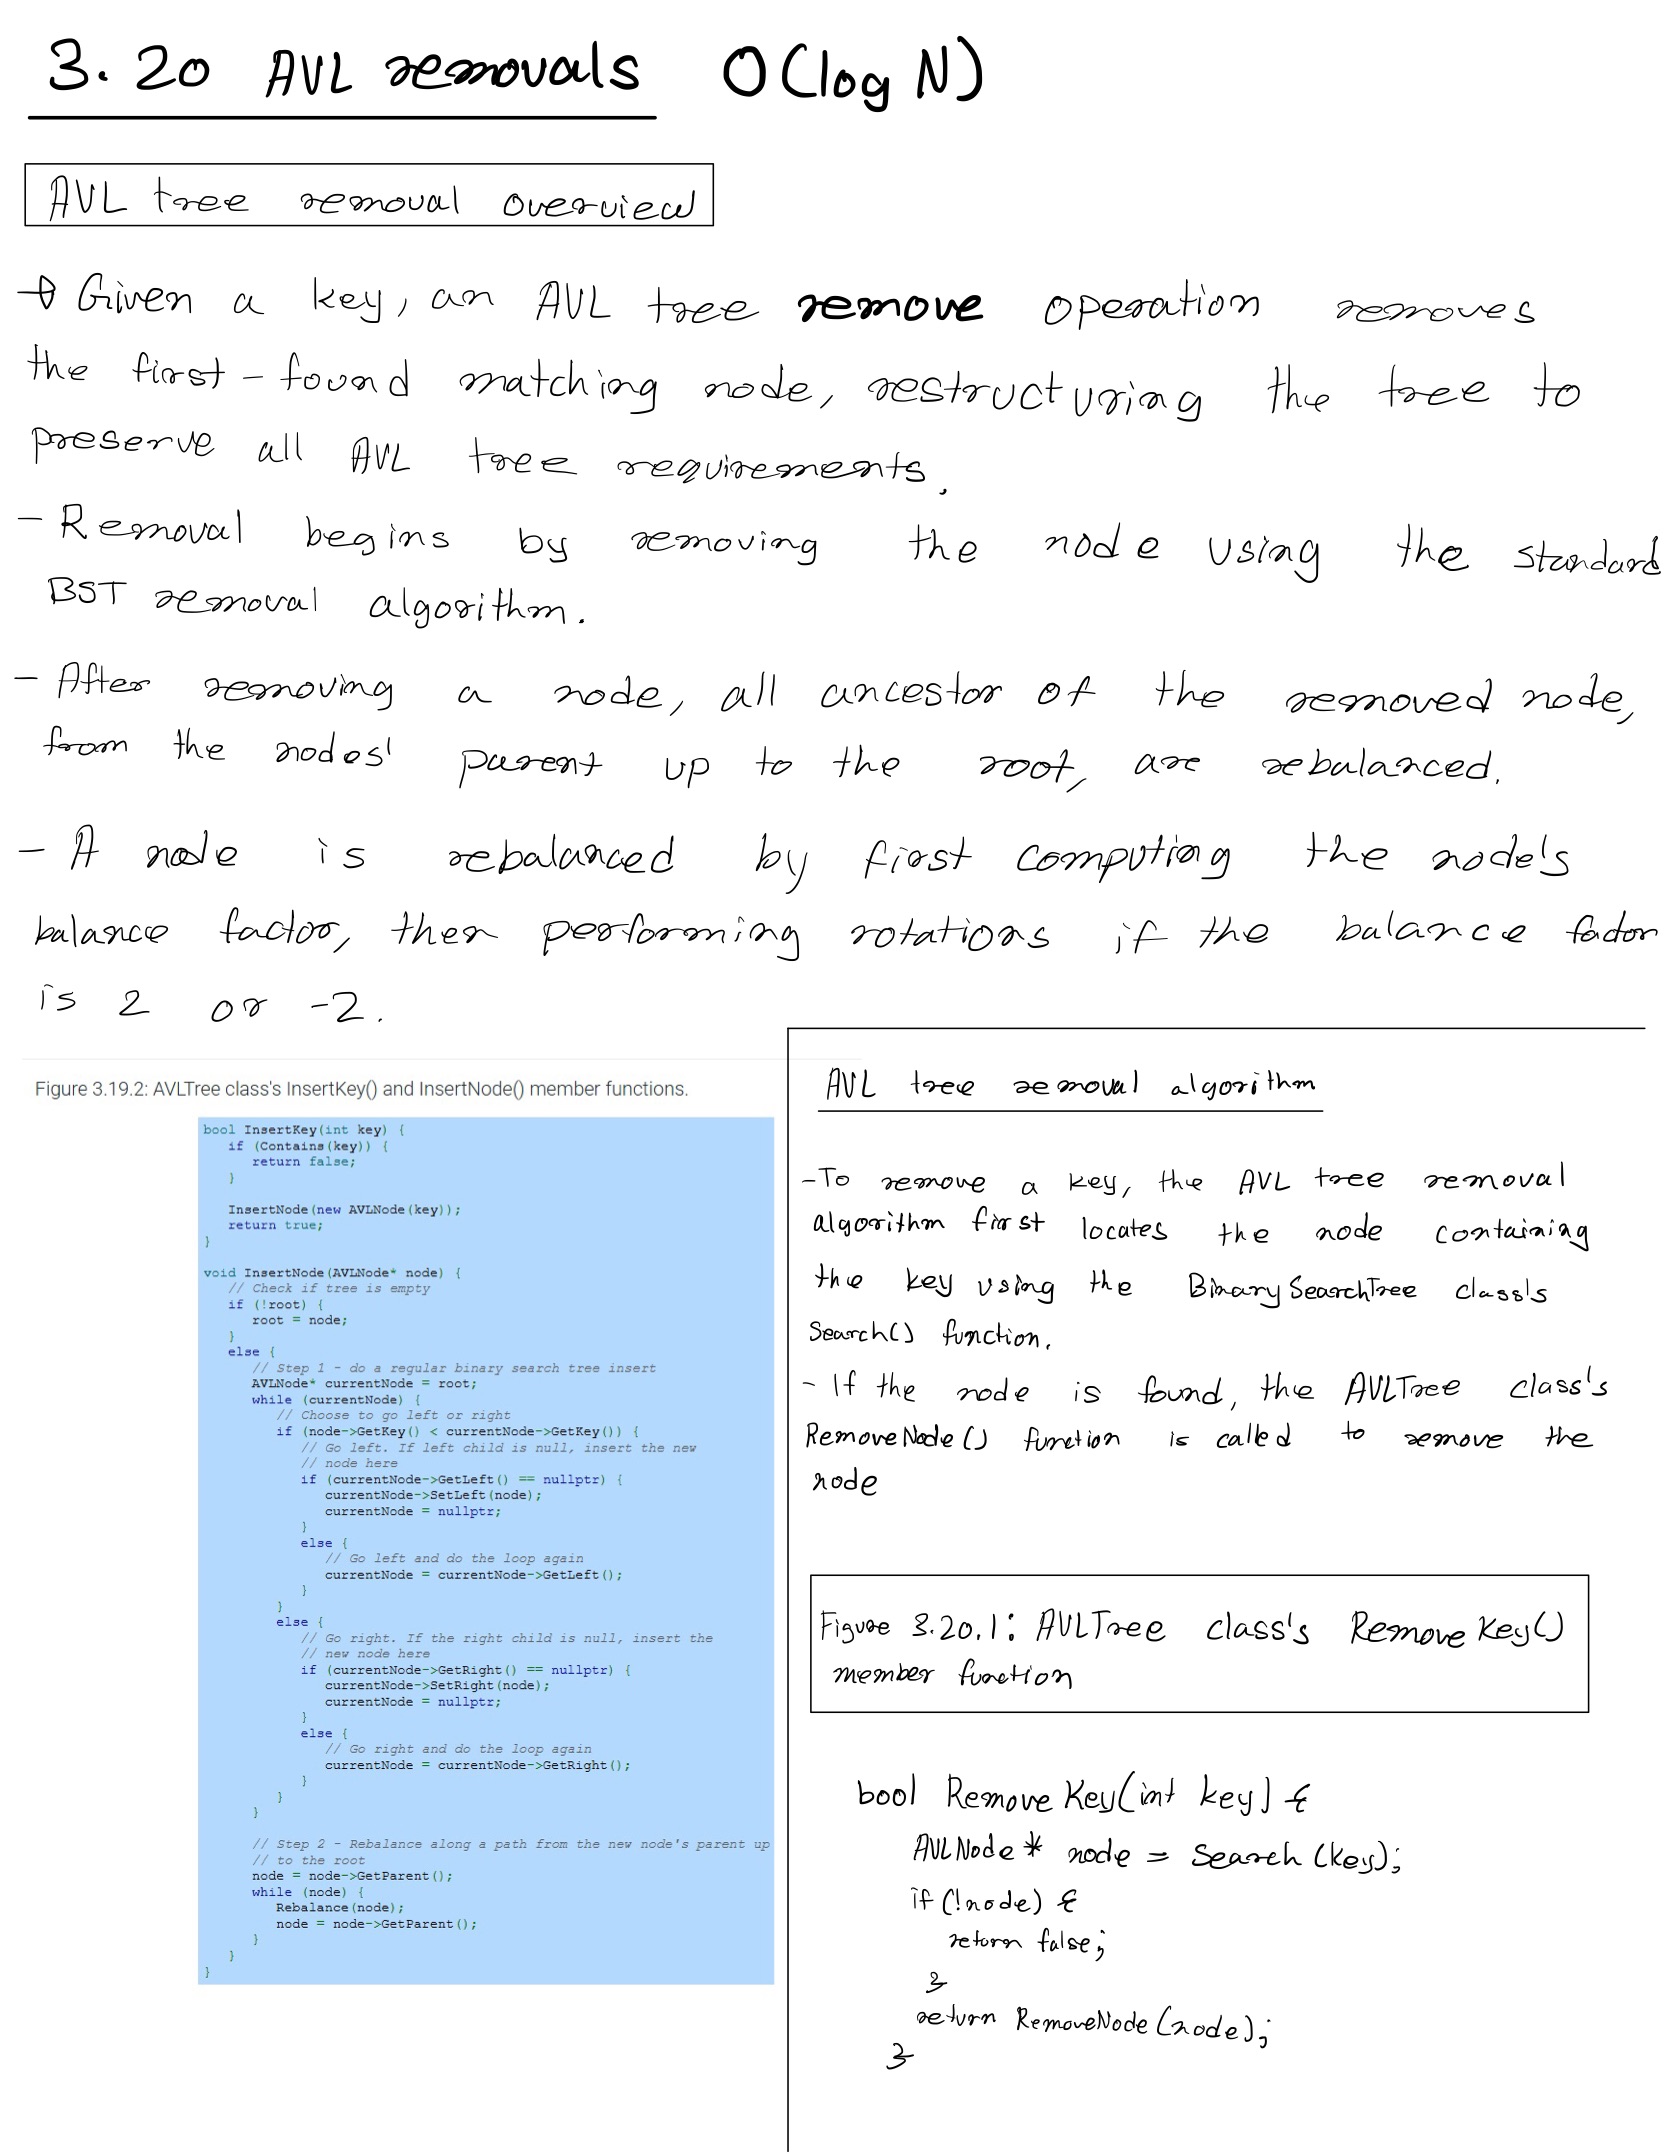 3.20 AVL removals O(log N)
AVL tree removal overview
→ Given a key, an AVL tree remove operation removes
the first-found matching node, restructuring the tree to
preserve all AVL tree requirements.
- Removal begins by removing the node using the standard
BST removal algorithm.
- After removing a node, all ancestor of the removed node,
from the nodes' parent up to the root, are rebalanced.
- A node is rebalanced by first computing the node's
balance factor, then performing rotations if the balance factor
is 2 or -2.
Figure 3.19.2: AVLTree class's InsertKey() and InsertNode() member functions.
bool InsertKey(int key) {
   if (Contains(key)) {
      return false;
   }
   InsertNode(new AVLNode(key));
   return true;
}
void InsertNode(AVLNode* node) {
   // Check if tree is empty
   if (!root) {
      root = node;
   }
   else {
      // Step 1 - do a regular binary search tree insert
      AVLNode* currentNode = root;
      while (currentNode) {
         // Choose to go left or right
         if (node->GetKey() < currentNode->GetKey()) {
            // Go left. If left child is null, insert the new
            // node here
            if (currentNode->GetLeft() == nullptr) {
               currentNode->SetLeft(node);
               currentNode = nullptr;
            }
            else {
               // Go left and do the loop again
               currentNode = currentNode->GetLeft();
            }
         }
         else {
            // Go right. If the right child is null, insert the
            // new node here
            if (currentNode->GetRight() == nullptr) {
               currentNode->SetRight(node);
               currentNode = nullptr;
            }
            else {
               // Go right and do the loop again
               currentNode = currentNode->GetRight();
            }
         }
      }
      // Step 2 - Rebalance along a path from the new node's parent up
      // to the root
      node = node->GetParent();
      while (node) {
         Rebalance(node);
         node = node->GetParent();
      }
   }
}
AVL tree removal algorithm
- To remove a key, the AVL tree removal
algorithm first locates the node containing
the key using the BinarySearchTree class's
Search() function.
- If the node is found, the AVLTree class's
RemoveNode() function is called to remove the
node
Figure 3.20.1: AVLTree class's RemoveKey()
member function
bool RemoveKey(int key) {
   AVLNode* node = Search(key);
   if (!node) {
      return false;
   }
   return RemoveNode(node);
}